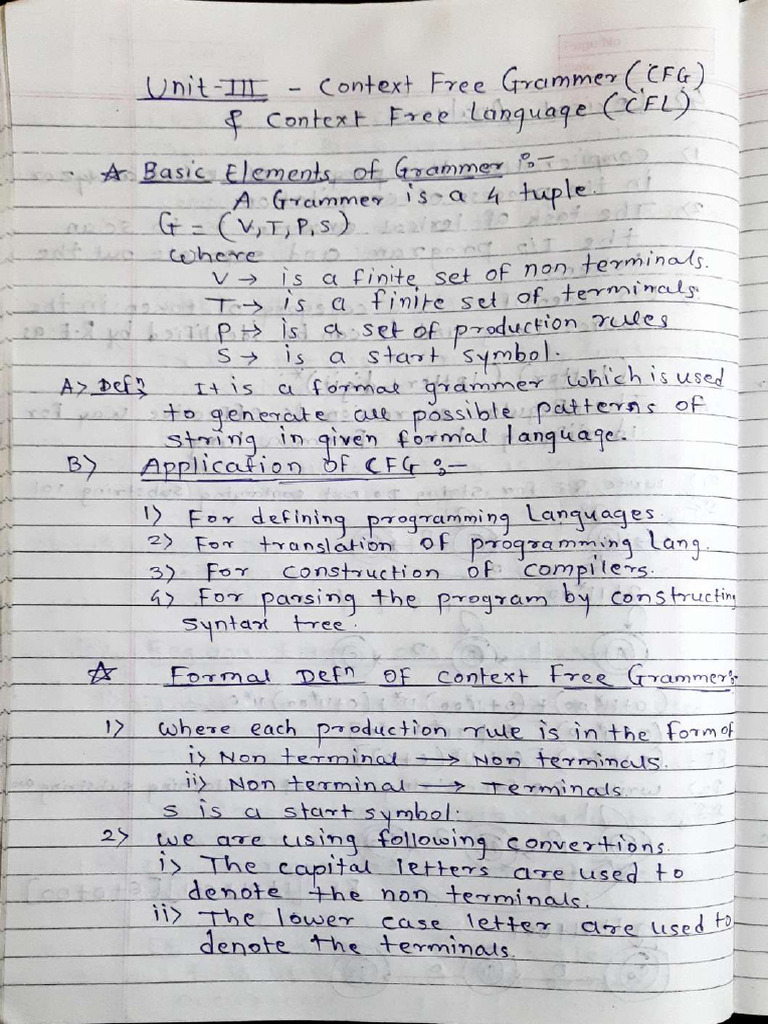 Unit-III - Context Free Grammer (CFG)
& Context Free Language (CFL)
☆ Basic Elements of Grammer :-
A Grammer is a 4 tuple.
G = (V, T, P, S)
where
V → is a finite set of non terminals.
T → is a finite set of terminals.
P → is a set of production rules
S → is a start symbol.
A> Defn It is a formal grammer which is used
to generate all possible patterns of
string in given formal language.
B> Application of CFG :-
1> For defining programming Languages.
2> For translation of programming Lang.
3> For construction of compilers.
4> For parsing the program by constructing
syntax tree.
☆ Formal Defn of Context Free Grammer:-
1> Where each production rule is in the form of
i> Non terminal → Non terminals.
ii> Non terminal → Terminals
S is a start symbol.
2> We are using following convertions.
i> The capital letters are used to
denote the non terminals.
ii> The lower case letter are used to
denote the terminals.